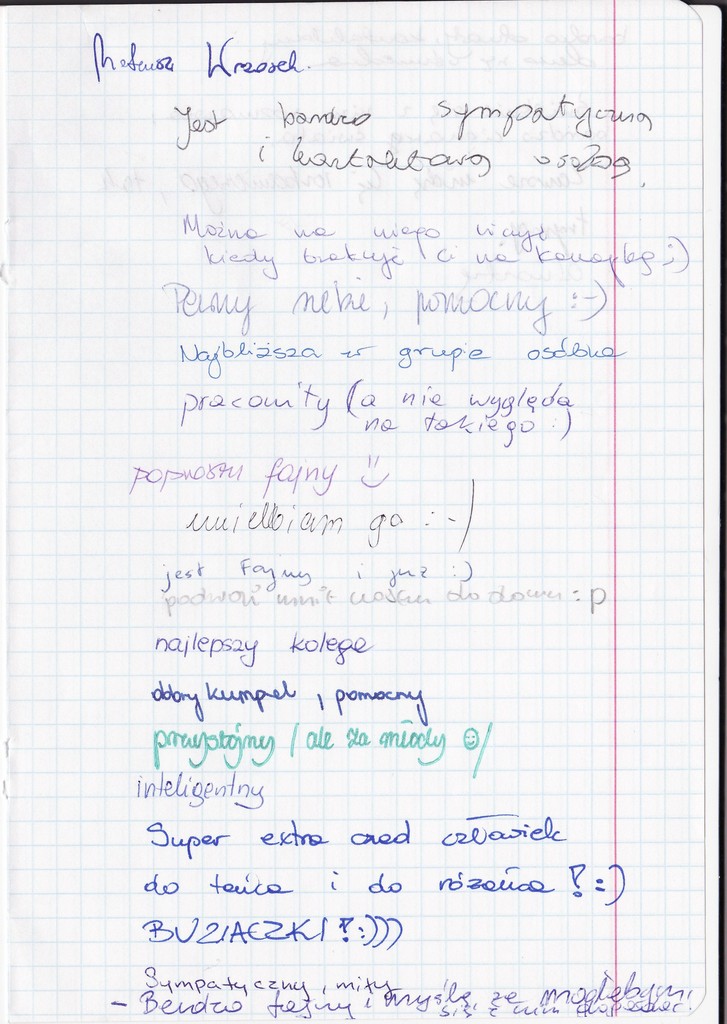 Mateusz Wrzosek.
Jest bardzo sympatyczną
i kontaktową osobą.
Można na niego liczyć
kiedy brakuje Ci na kanapkę ;)
Pewny siebie, pomocny :-)
Najbliższa w grupie osóbka
pracowity (a nie wygląda
na takiego :)
poprostu fajny
uwielbiam go :-)
jest Fajny i już :)
podwozi mnie do domu :p
najlepszy kolega
dobry kumpel, pomocny
przystojny / ale za młody ☺/
inteligentny
Super extra człowiek
do tańca i do różańca !:)
BUZIACZKI !:)))
Sympatyczny, miły
- Bardzo fajny i myślę że mogłabym
się z nim dogadać!